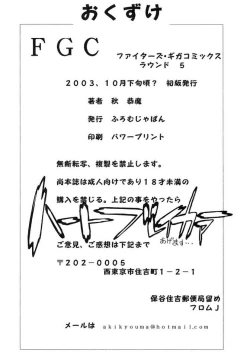 おくずけ
FGC
ファイターズ・ギガコミックス
ラウンド 5
2003、10月下旬頃? 初版発行
著者 秋 恭魔
発行 ふろむじゃぱん
印刷 パワープリント
無断転写、複製を禁止します。
尚本誌は成人向けであり18才未満の
購入を禁じる。上記の事をやったら
ハートブレイカァ
あげます…
ご意見、ご感想は下記まで
〒202-0005
西東京市住吉町1-2-1
保谷住吉郵便局留め
フロムJ
メールは akikyouma@hotmail.com